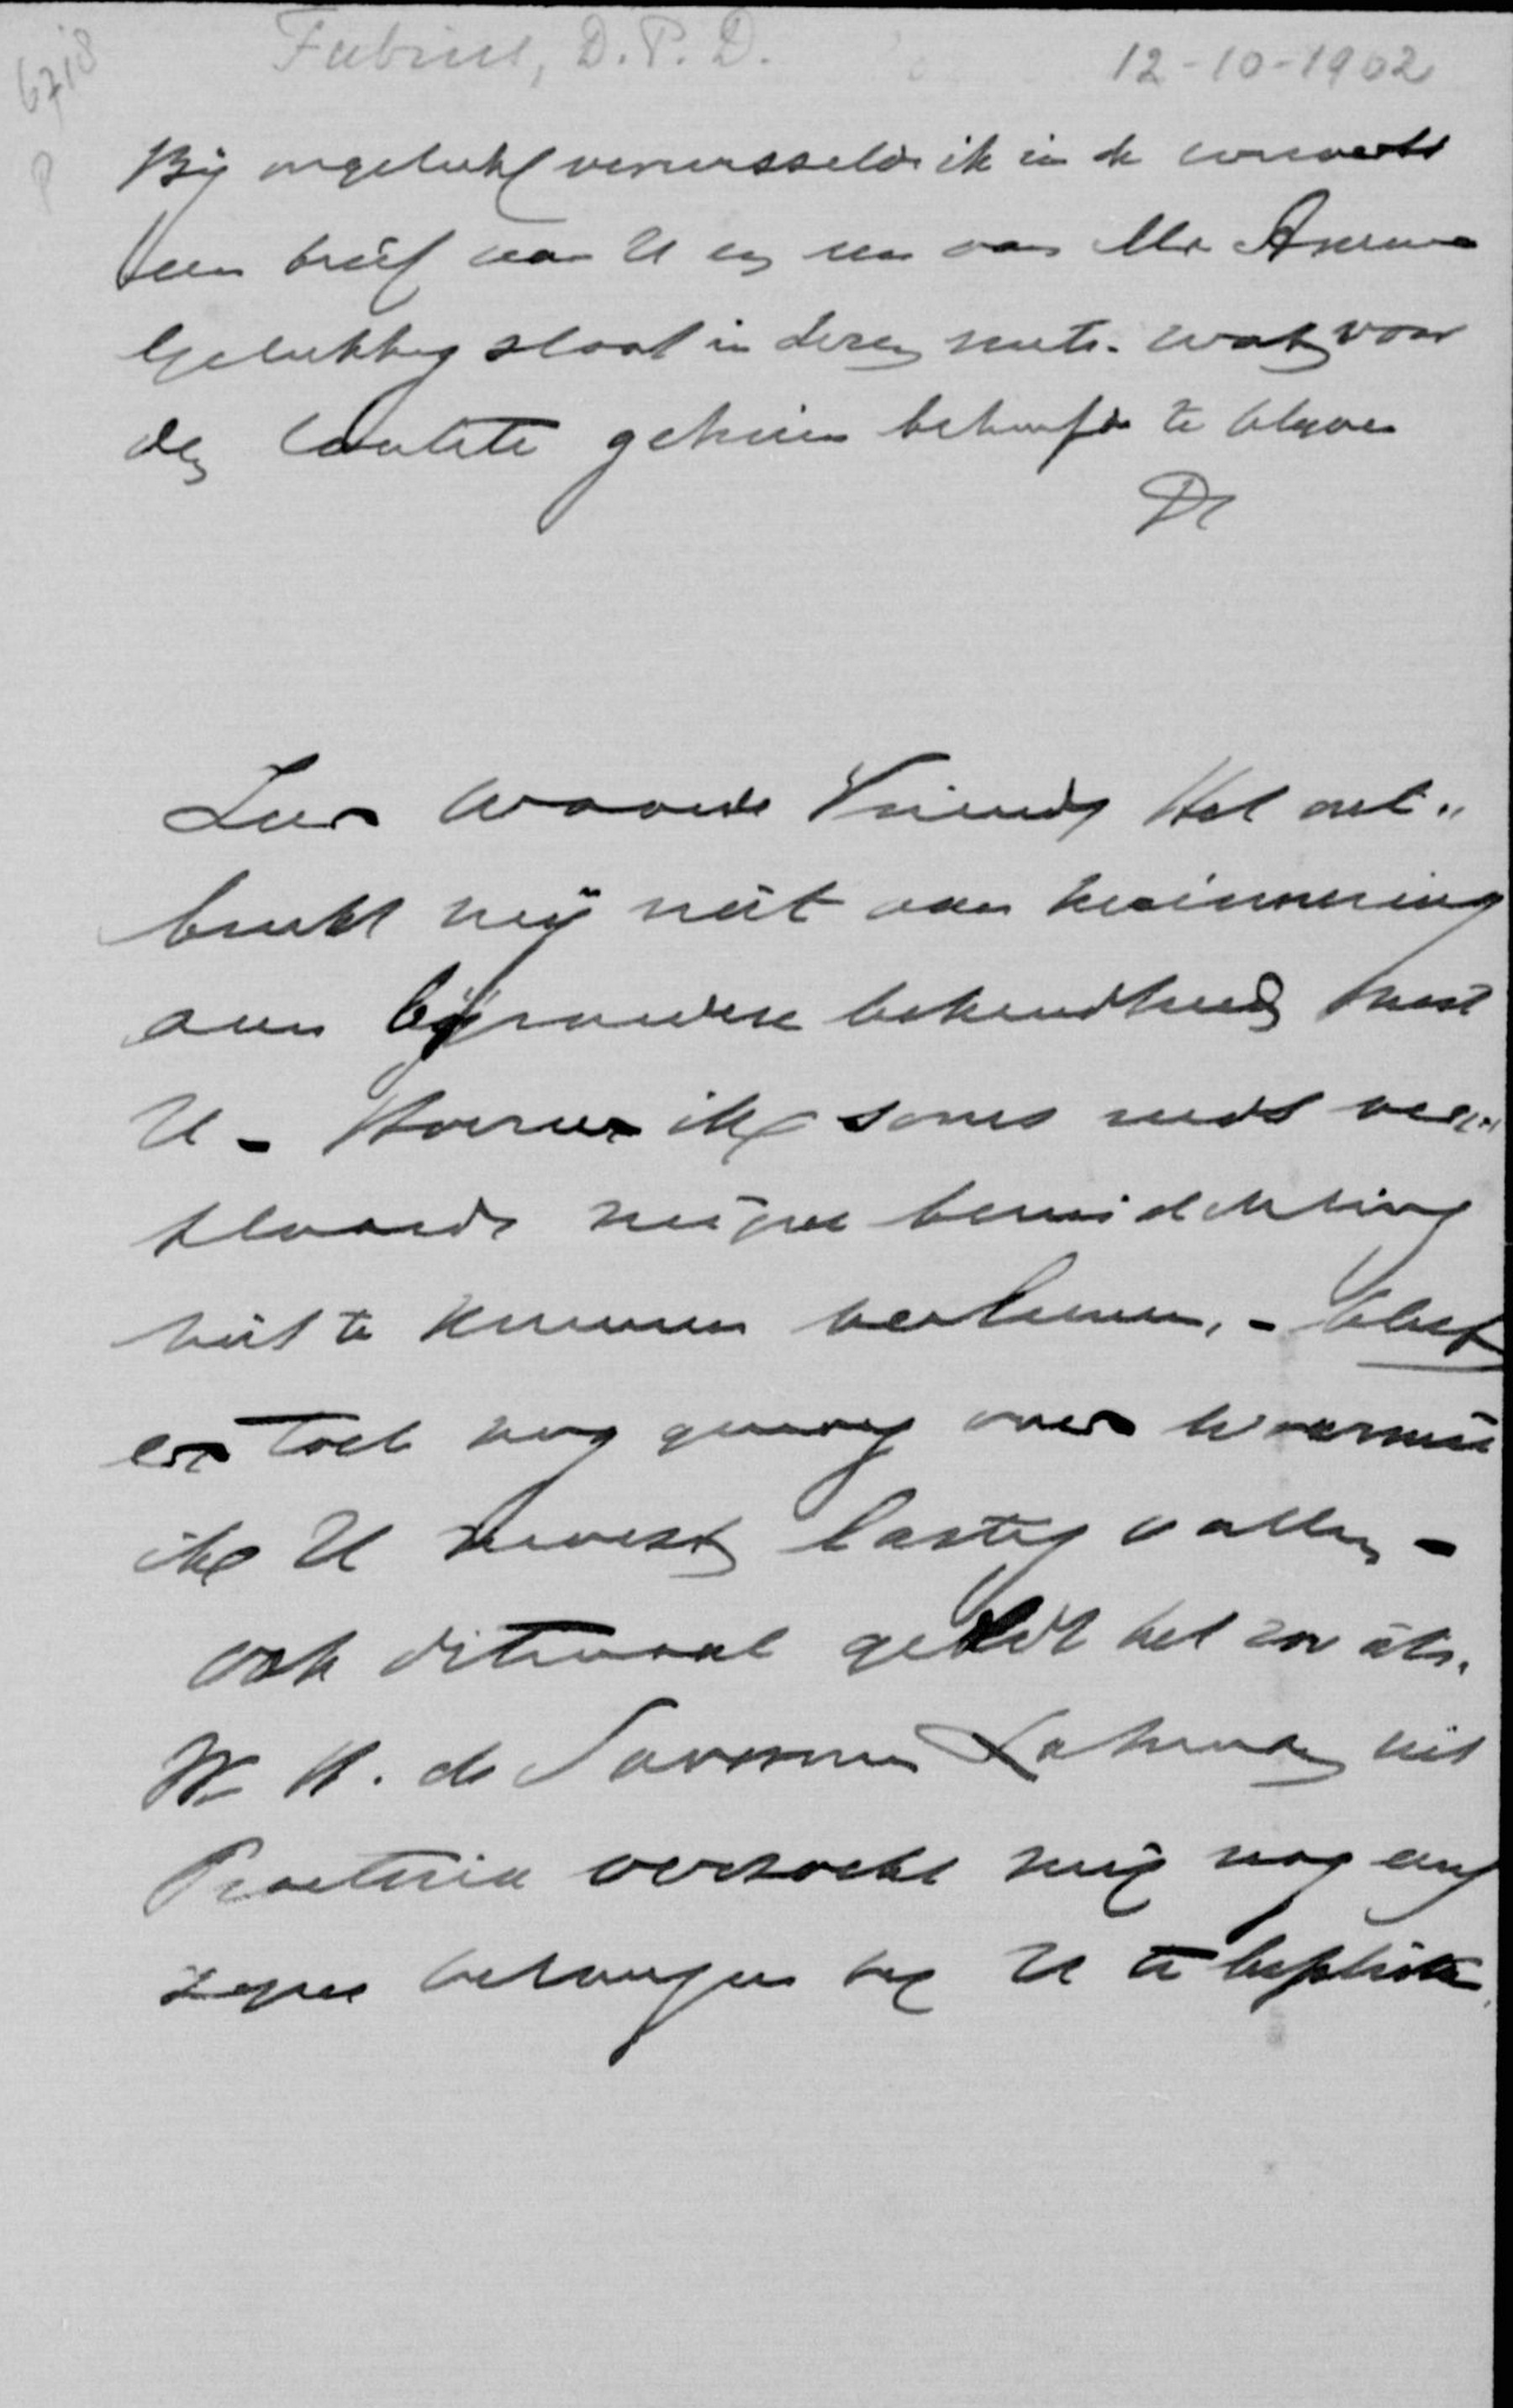 6718
P
Fabius, D.P.D.
12-10-1902
Bij ongeluk verwisselde ik in de couverts
een brief aan U en een aan Mr
Gelukkig staat in dezen niets wat voor
den laatste geheim behoefde te blijven
Zeer Waarde Vriend, Het ont„
breekt mij niet aan herinnering
aan bijzondere bekendheid met
U - Hoezeer ik soms reeds ver„
klaarde mijne bemiddeling
niet te kunnen verleenen, - bleef
er toch nog genoeg over waarmee
ik U moest lastig vallen -
Ook ditmaal geldt het zoo iets.
W H. de Savornin Lohman uit
Praetoria verzocht mij nog eens
zijne belangen bij U te bepleiten.